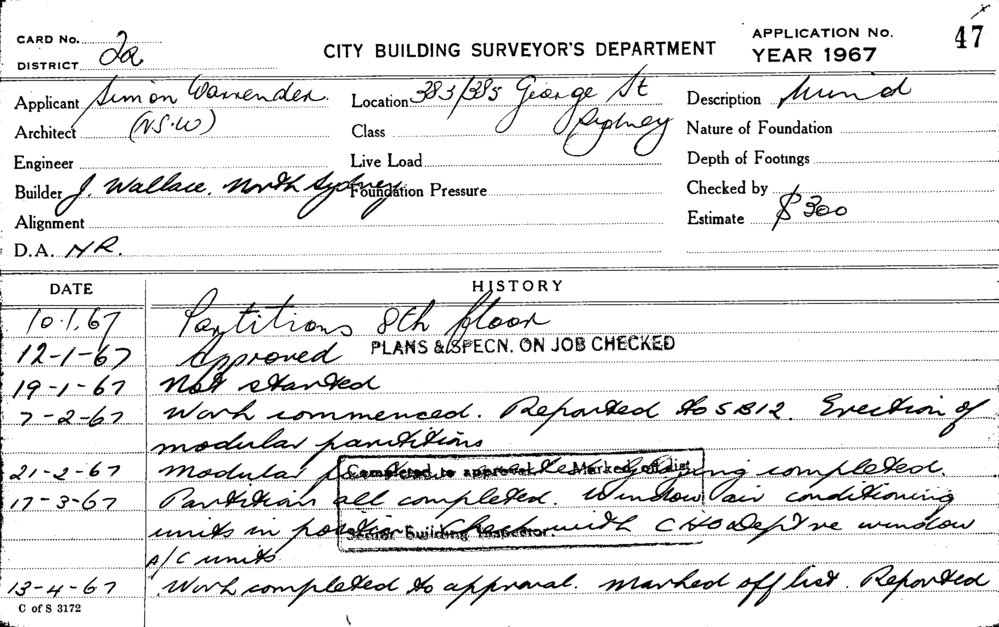 CARD No. 2a
DISTRICT
CITY BUILDING SURVEYOR'S DEPARTMENT
APPLICATION No. 47
YEAR 1967
Applicant Simon Warrender
Location 383/385 George St
Sydney
Description Mind
Architect (N.S.W)
Class
Nature of Foundation
Engineer
Live Load
Depth of Footings
Builder J. Wallace, North Sydney
Foundation Pressure
Checked by
Alignment
Estimate $300
D.A. NR.
DATE HISTORY
10.1.67 Partitions 8th floor
12-1-67 Approved PLANS & SPECN. ON JOB CHECKED
19-1-67 Not started
7-2-67 Work commenced. Reported to SB12. Erection of
modular partitions
21-2-67 Modular being completed.
Completed to approval. Marked off list
17-3-67 Partitions all completed. Window air conditioning
units in position. Check with CHO Dep't re window
Senior Building Inspector.
A/C units
13-4-67 Work completed to approval. Marked off list. Reported
C of S 3172